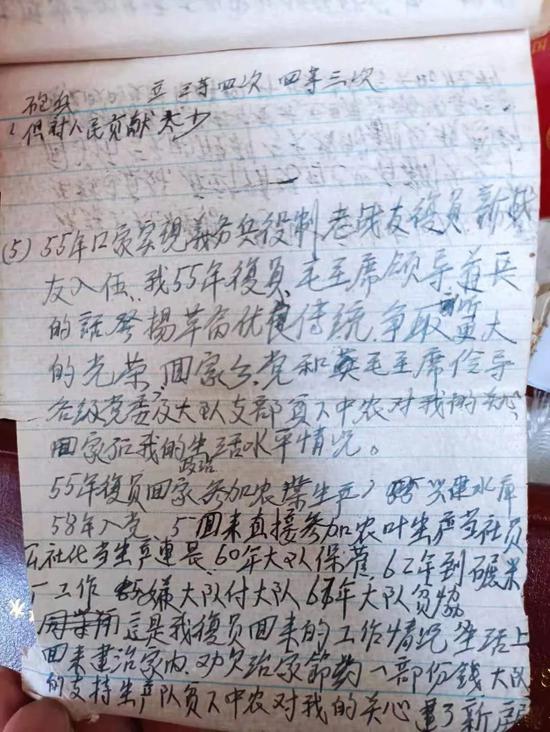 砲兵 立三等四次 四等三次
但對人民贡献太少
(5) 55年口家实現義务兵役制 老战友復員 新战
友入伍、我55年復員、毛主席领导
的話 發揚革命优良傳統、争取更大
的光荣、回家后、党和毛主席領导
各級党委及大队支部貧下中农对我的
回家后我的生活水平情况。
政治
55年復員回家参加农業生产 兴建水库
58年入党 回来直接参加农叶生产当社員
公社化当生产連長、60年大队保管、62年到碾米
厂工作 大队付大队 大队貧協
这是我復員回来的工作情况 生活上
回来建治家内、劝欠治家節約一部份錢 大队
的支持生产队貧下中农对我的关心 建了新房